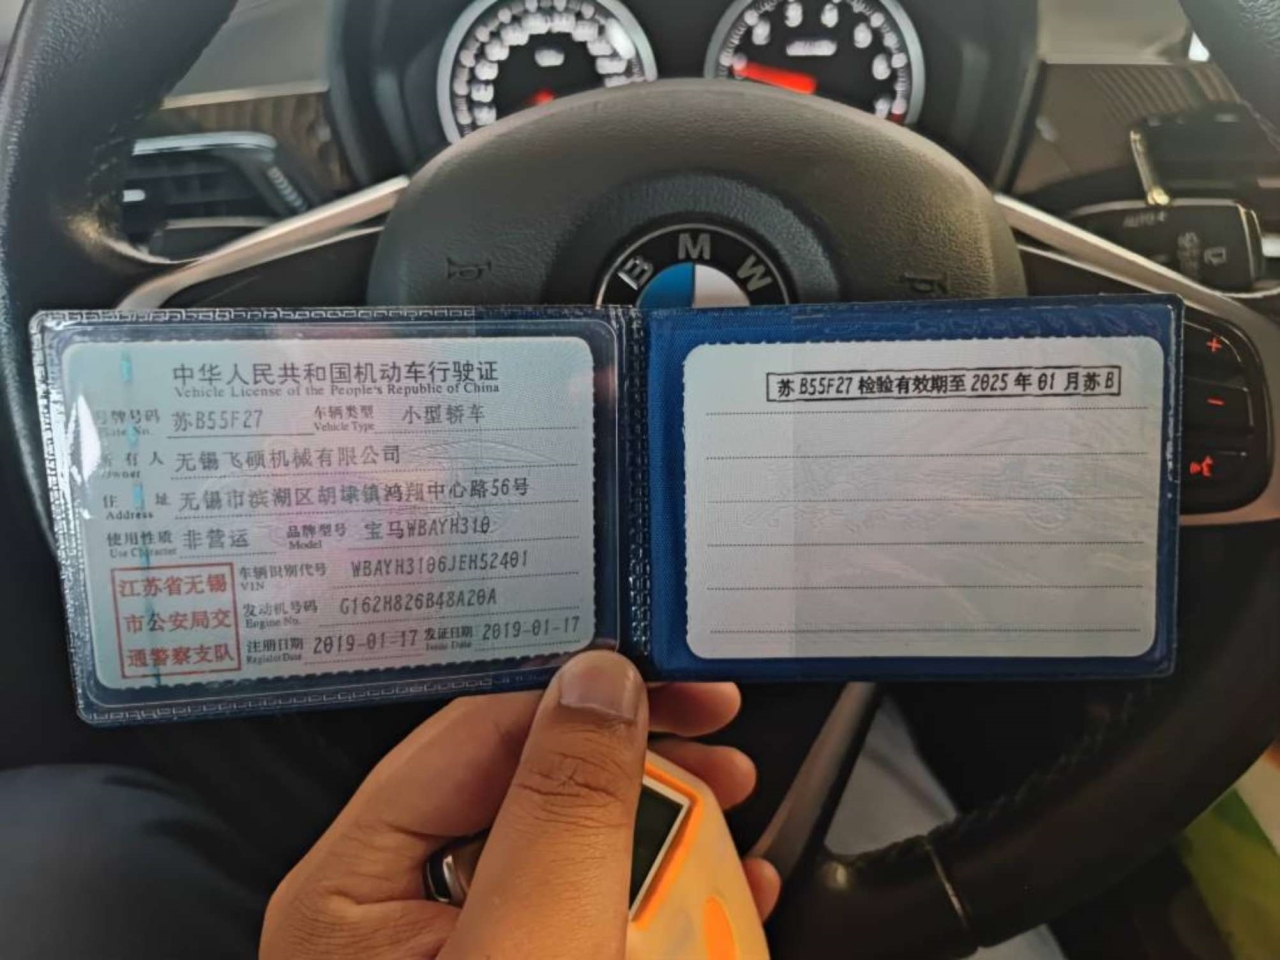 B M W
中华人民共和国机动车行驶证
Vehicle License of the People's Republic of China
号牌号码 苏B55F27 车辆类型 小型轿车
Plate No. Vehicle Type
所有人 无锡飞硕机械有限公司
Owner
住址 无锡市滨湖区胡埭镇鸿翔中心路56号
Address
使用性质 非营运 品牌型号 宝马WBAYH310
Use Character Model
车辆识别代号 WBAYH3106JEH52401
VIN
发动机号码 G162H826B48A20A
Engine No.
注册日期 2019-01-17 发证日期 2019-01-17
Register Date Issue Date
江苏省无锡
市公安局交
通警察支队
苏B55F27检验有效期至2025年01月苏B
AUTO
+
-